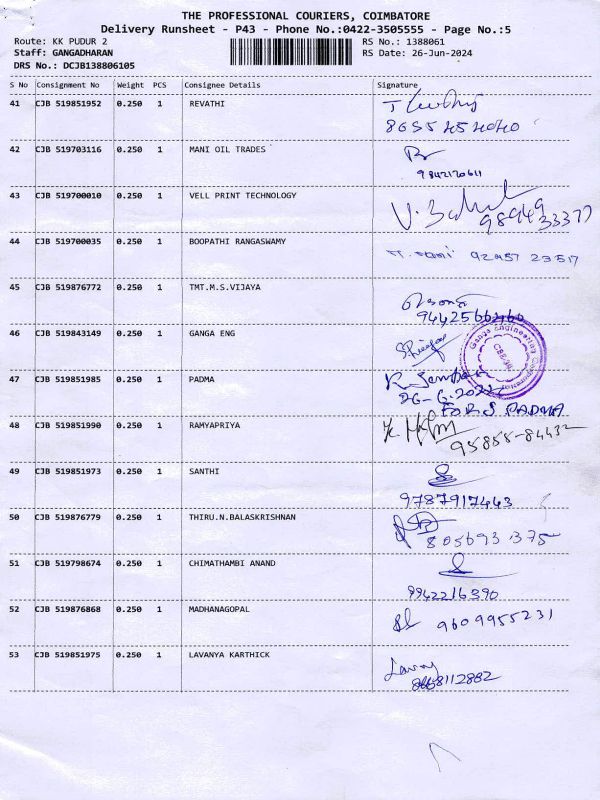 THE PROFESSIONAL COURIERS, COIMBATORE
Delivery Runsheet - P43 - Phone No.:0422-3505555 - Page No.:5
Route: KK PUDUR 2 RS No.: 1388061
Staff: GANGADHARAN RS Date: 26-Jun-2024
DRS No.: DCJB138806105
S No Consignment No Weight PCS Consignee Details Signature
41 CJB 519851952 0.250 1 REVATHI
42 CJB 519703116 0.250 1 MANI OIL TRADES
9842170611
43 CJB 519700010 0.250 1 VELL PRINT TECHNOLOGY
98949
33377
44 CJB 519700035 0.250 1 BOOPATHI RANGASWAMY
92457 23517
45 CJB 519876772 0.250 1 TMT.M.S.VIJAYA
9442566460
46 CJB 519843149 0.250 1 GANGA ENG
Ganga Engineering
47 CJB 519851985 0.250 1 PADMA
FOR S PADMA
48 CJB 519851990 0.250 1 RAMYAPRIYA
95855-84432
49 CJB 519851973 0.250 1 SANTHI
9787917443
50 CJB 519876779 0.250 1 THIRU.N.BALASKRISHNAN
8056931375
51 CJB 519798674 0.250 1 CHIMATHAMBI ANAND
9942216390
52 CJB 519876868 0.250 1 MADHANAGOPAL
9609955231
53 CJB 519851975 0.250 1 LAVANYA KARTHICK